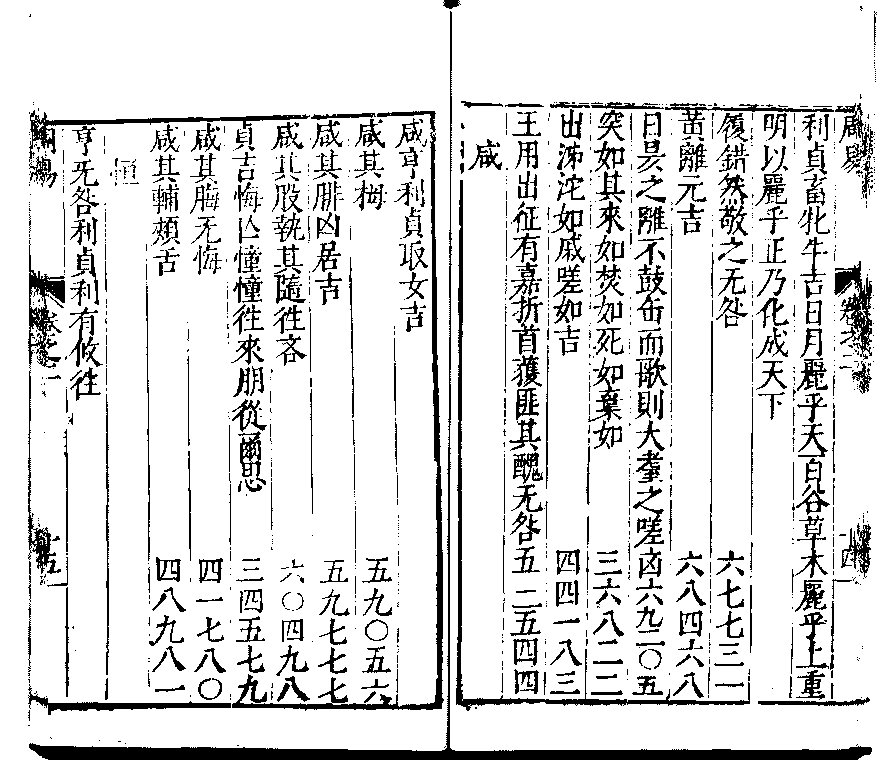 利貞畜牝牛吉日月麗乎天百谷草木麗乎上重
明以麗乎正乃化成天下
履錯然敬之无咎 六七七三一
黃離元吉 六八四六八
日昃之離不鼓缶而歌則大耋之嗟凶六九二〇五
突如其來如焚如死如棄如 三六八二二
出涕沱如戚嗟如吉 四四一八三
王用出征有嘉折首獲匪其醜无咎五二五四四
咸
卷之二
十四
咸亨利貞取女吉
咸其栂 五九〇五六
咸其腓凶居吉 五九七七七
咸其股執其隨徃吝 六〇四九八
貞吉悔亾憧憧徃來朋從爾思 三四五七九
咸其脢无悔 四一七八〇
咸其輔頰舌 四八九八一
恒
亨无咎利貞利有攸往
卷之一
十五